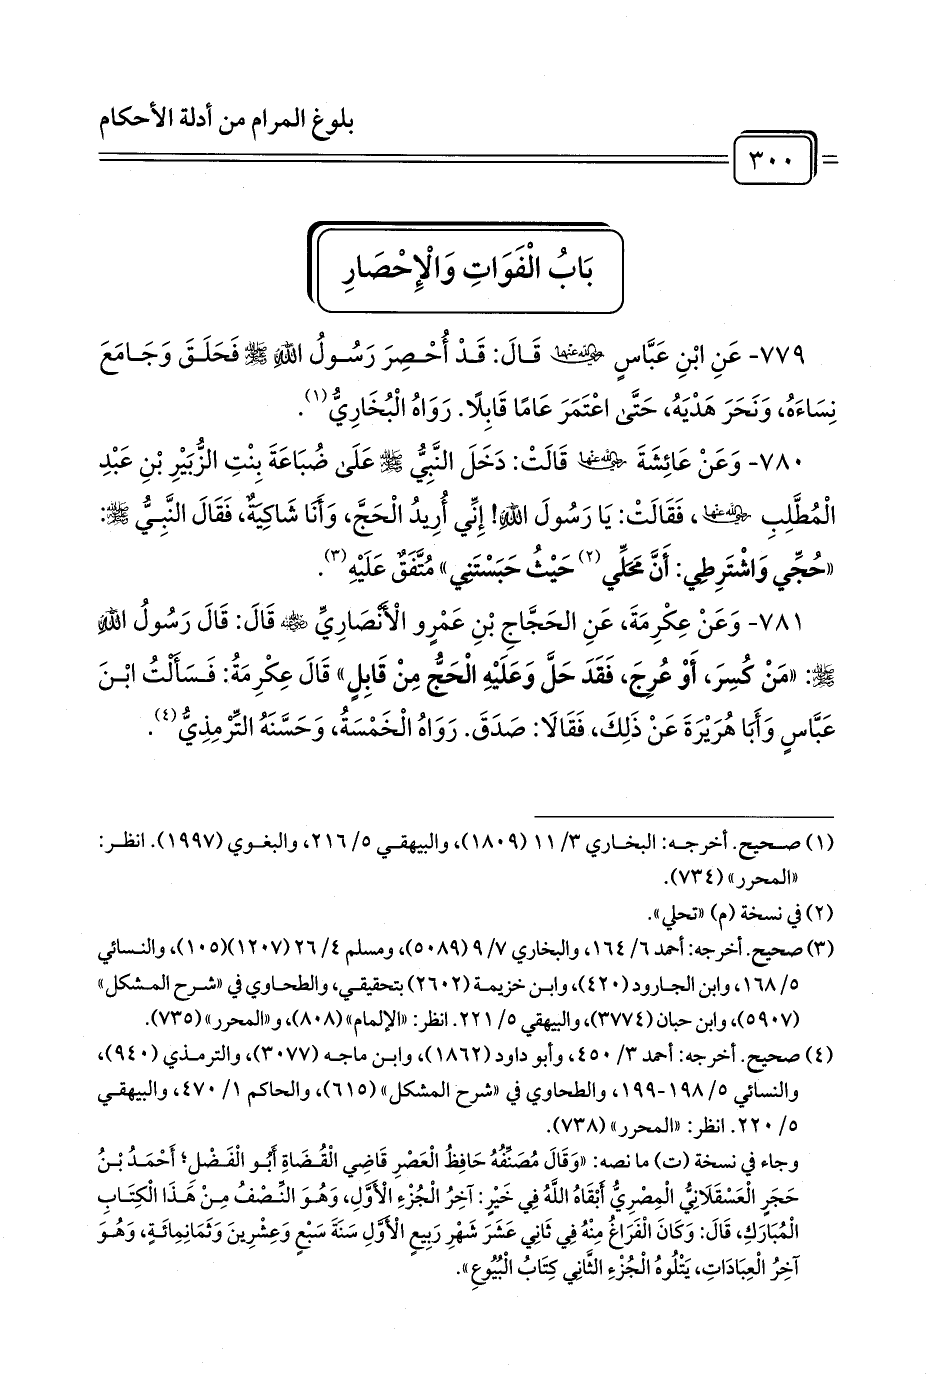 بلوغ المرام من أدلة الأحكام
٣٠٠
بَابُ الْفَوَاتِ وَالْإِحْصَارِ
٧٧٩- عَنِ ابْنِ عَبَّاسٍ رضي الله عنهما قَالَ: قَدْ أُحْصِرَ رَسُولُ اللهِ ﷺ فَحَلَقَ وَجَامَعَ
نِسَاءَهُ، وَنَحَرَ هَدْيَهُ، حَتَّى اعْتَمَرَ عَامًا قَابِلًا. رَوَاهُ الْبُخَارِيُّ(١).
٧٨٠- وَعَنْ عَائِشَةَ رضي الله عنها قَالَتْ: دَخَلَ النَّبِيُّ ﷺ عَلَى ضُبَاعَةَ بِنْتِ الزُّبَيْرِ بْنِ عَبْدِ
الْمُطَّلِبِ رضي الله عنها، فَقَالَتْ: يَا رَسُولَ اللهِ! إِنِّي أُرِيدُ الْحَجَّ، وَأَنَا شَاكِيَةٌ، فَقَالَ النَّبِيُّ ﷺ:
«حُجِّي وَاشْتَرِطِي: أَنَّ مَحَلِّي(٢) حَيْثُ حَبَسْتَنِي» مُتَّفَقٌ عَلَيْهِ(٣).
٧٨١- وَعَنْ عِكْرِمَةَ، عَنِ الحَجَّاجِ بْنِ عَمْرٍو الْأَنْصَارِيِّ رضي الله عنه قَالَ: قَالَ رَسُولُ اللهِ
ﷺ: «مَنْ كُسِرَ، أَوْ عُرِجَ، فَقَدَ حَلَّ وَعَلَيْهِ الْحَجُّ مِنْ قَابِلٍ» قَالَ عِكْرِمَةُ: فَسَأَلْتُ ابْنَ
عَبَّاسٍ وَأَبَا هُرَيْرَةَ عَنْ ذَلِكَ، فَقَالَا: صَدَقَ. رَوَاهُ الْخَمْسَةُ، وَحَسَّنَهُ التِّرْمِذِيُّ(٤).
(١) صحيح. أخرجه: البخاري ٣/ ١١ (١٨٠٩)، والبيهقي ٥/ ٢١٦، والبغوي (١٩٩٧). انظر:
«المحرر» (٧٣٤).
(٢) في نسخة (م) «تحلي».
(٣) صحيح. أخرجه: أحمد ٦/ ١٦٤، والبخاري ٧/ ٩ (٥٠٨٩)، ومسلم ٤/ ٢٦ (١٢٠٧)(١٠٥)، والنسائي
٥/ ١٦٨، وابن الجارود (٤٢٠)، وابن خزيمة (٢٦٠٢) بتحقيقي، والطحاوي في «شرح المشكل»
(٥٩٠٧)، وابن حبان (٣٧٧٤)، والبيهقي ٥/ ٢٢١. انظر: «الإلمام» (٨٠٨)، و«المحرر» (٧٣٥).
(٤) صحيح. أخرجه: أحمد ٣/ ٤٥٠، وأبو داود (١٨٦٢)، وابن ماجه (٣٠٧٧)، والترمذي (٩٤٠)،
والنسائي ٥/ ١٩٨-١٩٩، والطحاوي في «شرح المشكل» (٦١٥)، والحاكم ١/ ٤٧٠، والبيهقي
٥/ ٢٢٠. انظر: «المحرر» (٧٣٨).
وجاء في نسخة (ت) ما نصه: «وَقَالَ مُصَنِّفُهُ حَافِظُ الْعَصْرِ قَاضِي الْقُضَاةِ أَبُو الْفَضْلِ؛ أَحْمَدُ بْنُ
حَجَرٍ الْعَسْقَلَانِيُّ الْمِصْرِيُّ أَبْقَاهُ اللَّهُ فِي خَيْرٍ: آخِرُ الْجُزْءِ الْأَوَّلِ، وَهُوَ النِّصْفُ مِنْ هَذَا الْكِتَابِ
الْمُبَارَكِ، قَالَ: وَكَانَ الْفَرَاغُ مِنْهُ فِي ثَانِي عَشَرَ شَهْرِ رَبِيعٍ الْأَوَّلِ سَنَةَ سَبْعٍ وَعِشْرِينَ وَثَمَانِمِائَةٍ، وَهُوَ
آخِرُ الْعِبَادَاتِ، يَتْلُوهُ الْجُزْءُ الثَّانِي كِتَابُ الْبُيُوعِ».